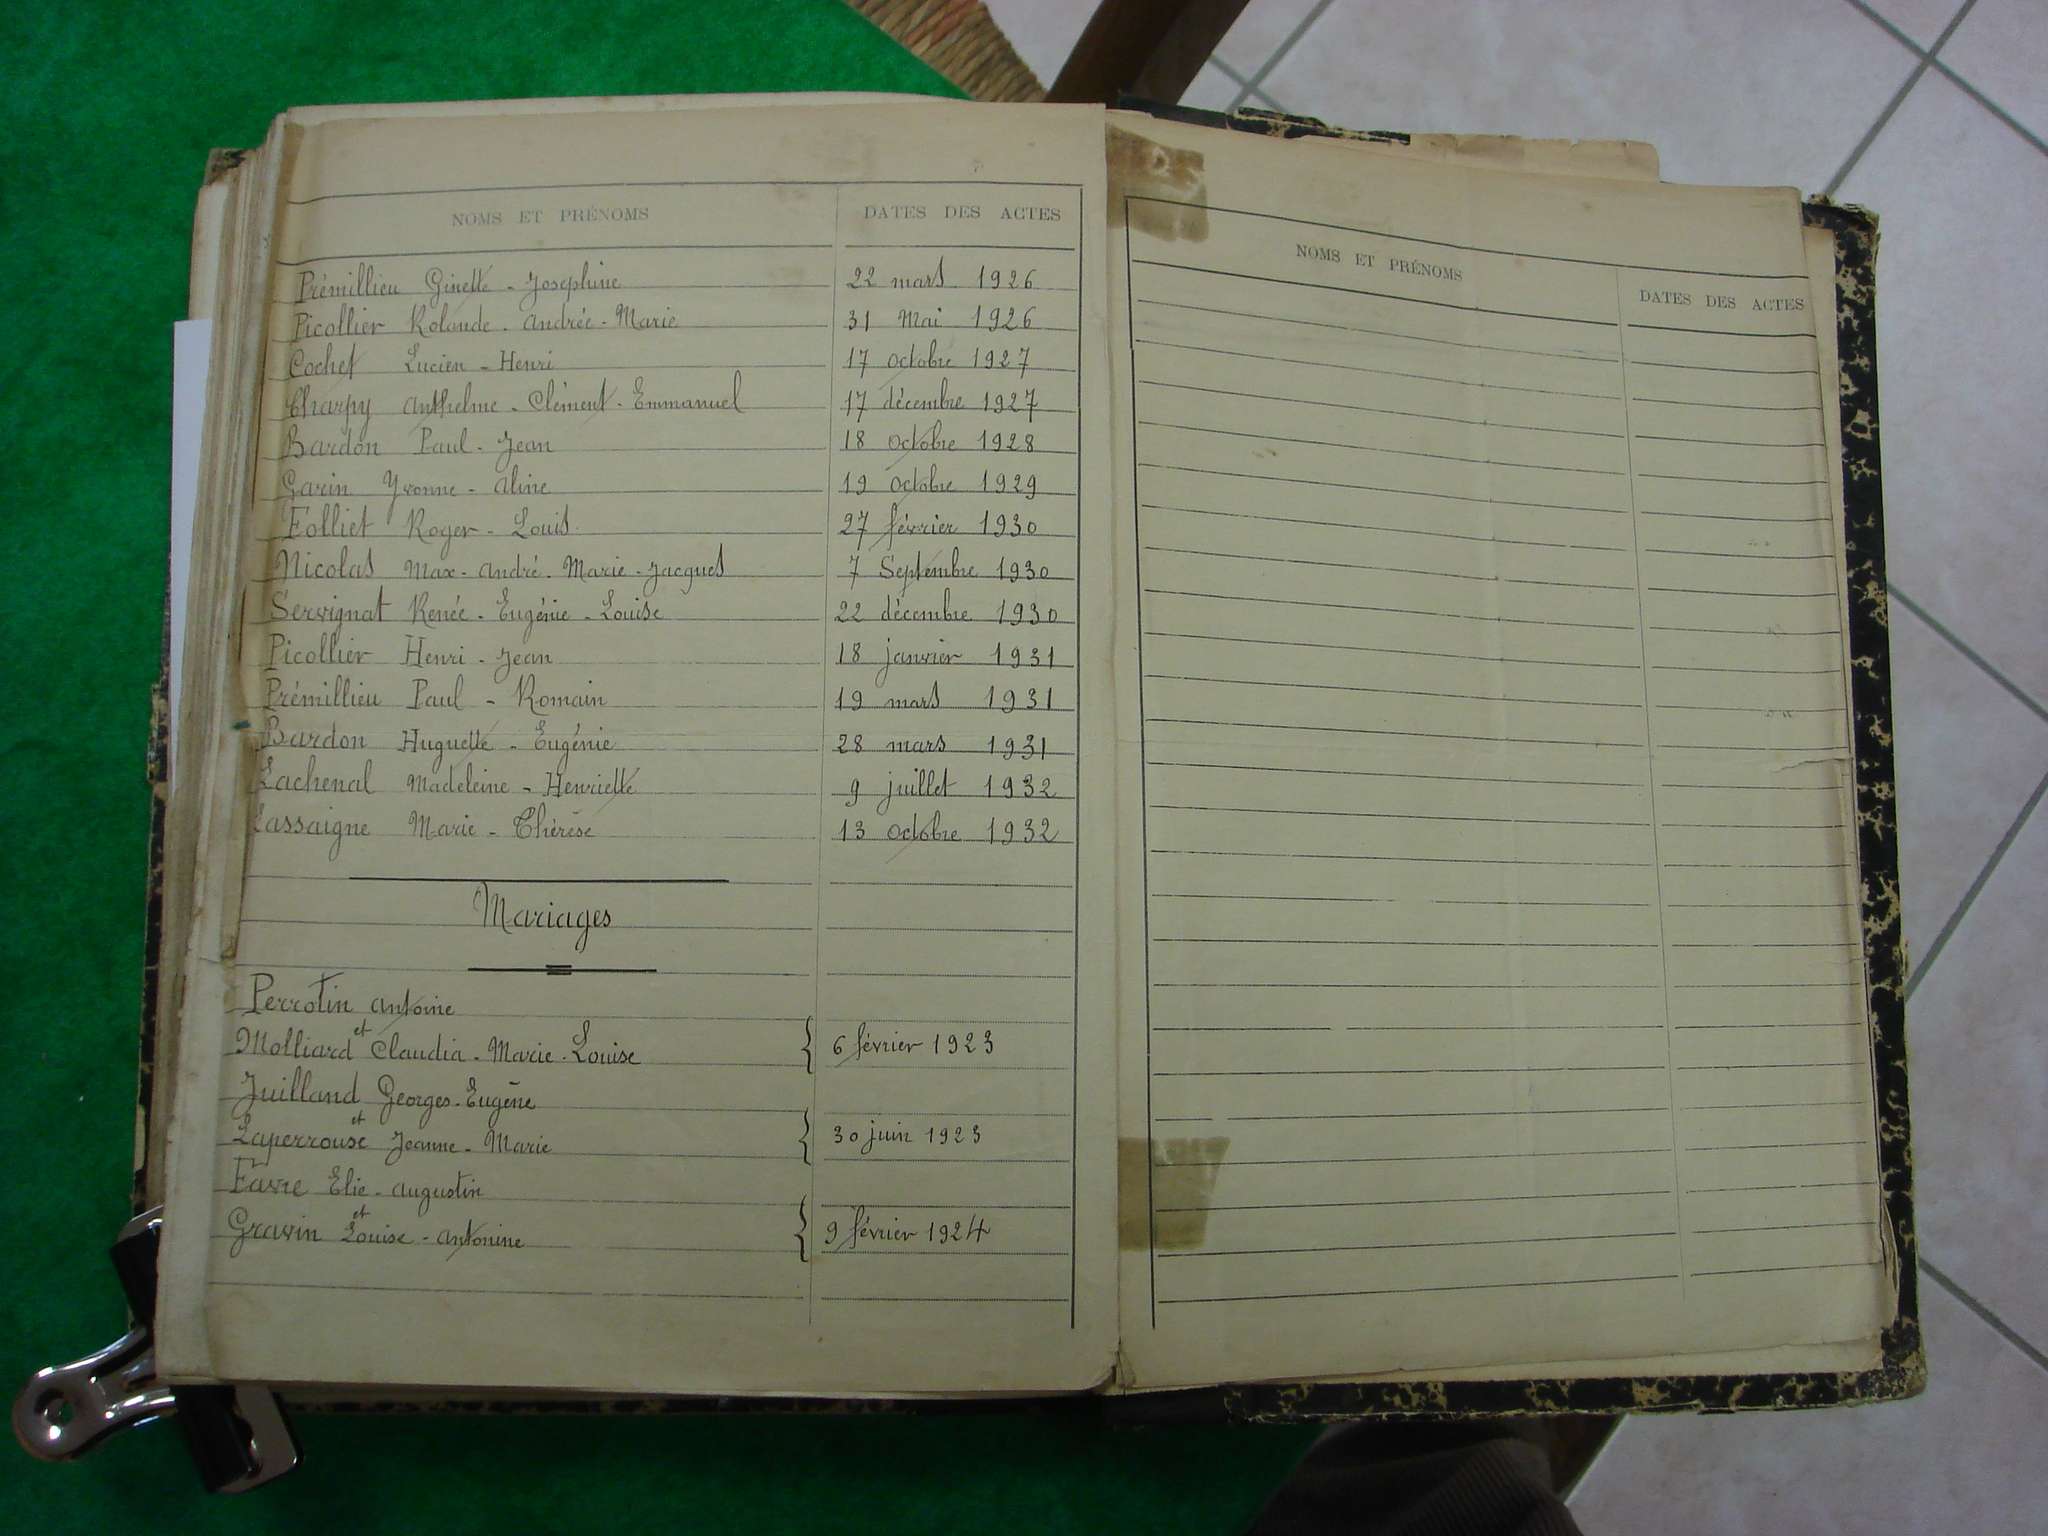 NOMS ET PRÉNOMS DATES DES ACTES
Prémillieu Ginette - Joséphine 22 mars 1926
Picollier Rolande - Andrée - Marie 31 Mai 1926
Cochet Lucien - Henri 17 octobre 1927
Charpy Anthelme - Clément - Emmanuel 17 décembre 1927
Bardon Paul - Jean 18 octobre 1928
Garin Yvonne - Aline 19 octobre 1929
Folliet Roger - Louis 27 février 1930
Nicolas Max - André - Marie - Jacques 7 Septembre 1930
Servignat Renée - Eugénie - Louise 22 décembre 1930
Picollier Henri - Jean 18 janvier 1931
Prémillieu Paul - Romain 19 mars 1931
Bardon Huguette - Eugénie 28 mars 1931
Lachenal Madeleine - Henriette 9 juillet 1932
Cassaigne Marie - Thérèse 13 octobre 1932
Mariages
Perrotin Antoine
et
Molliard Claudia - Marie - Louise 6 février 1923
Juilland Georges - Eugène
et
Laperrouse Jeanne - Marie 30 juin 1923
Favre Elie - Augustin
et
Gravin Louise - Antonine 9 février 1924
NOMS ET PRÉNOMS DATES DES ACTES